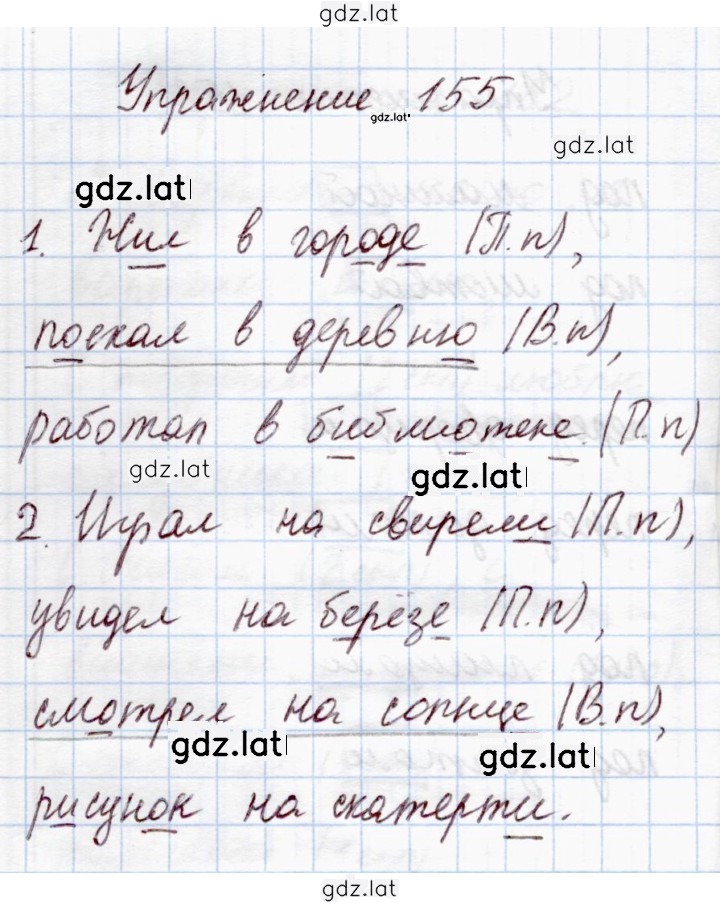 gdz.lat
Упражнение 155
gdz.lat
gdz.lat
gdz.lat
1. Жил в городе (П.п),
поехал в деревню (В.п),
работал в библиотеке. (П.п)
gdz.lat
gdz.lat
2. Играл на свирели (П.п),
увидел на берёзе (П.п),
смотрел на солнце (В.п),
gdz.lat
gdz.lat
рисунок на скатерти.
gdz.lat